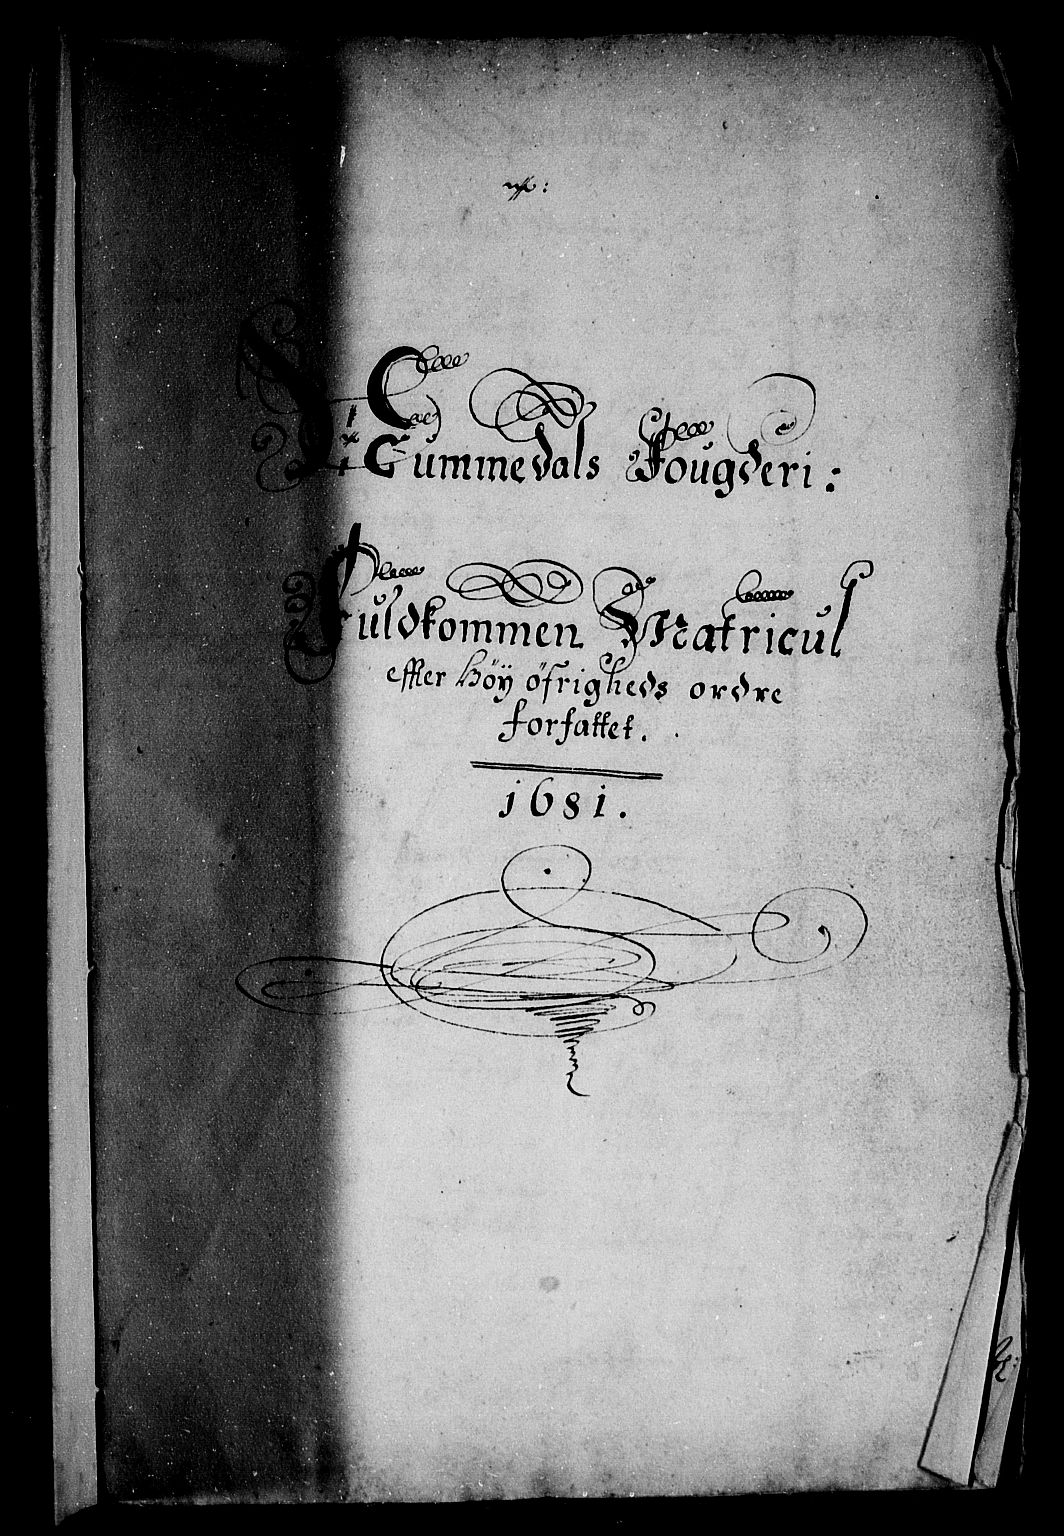 Nummedals Fougderi:
Fuldkommen Matricul
effter Höÿ öfrigheds ordre
forfattet.
1681.